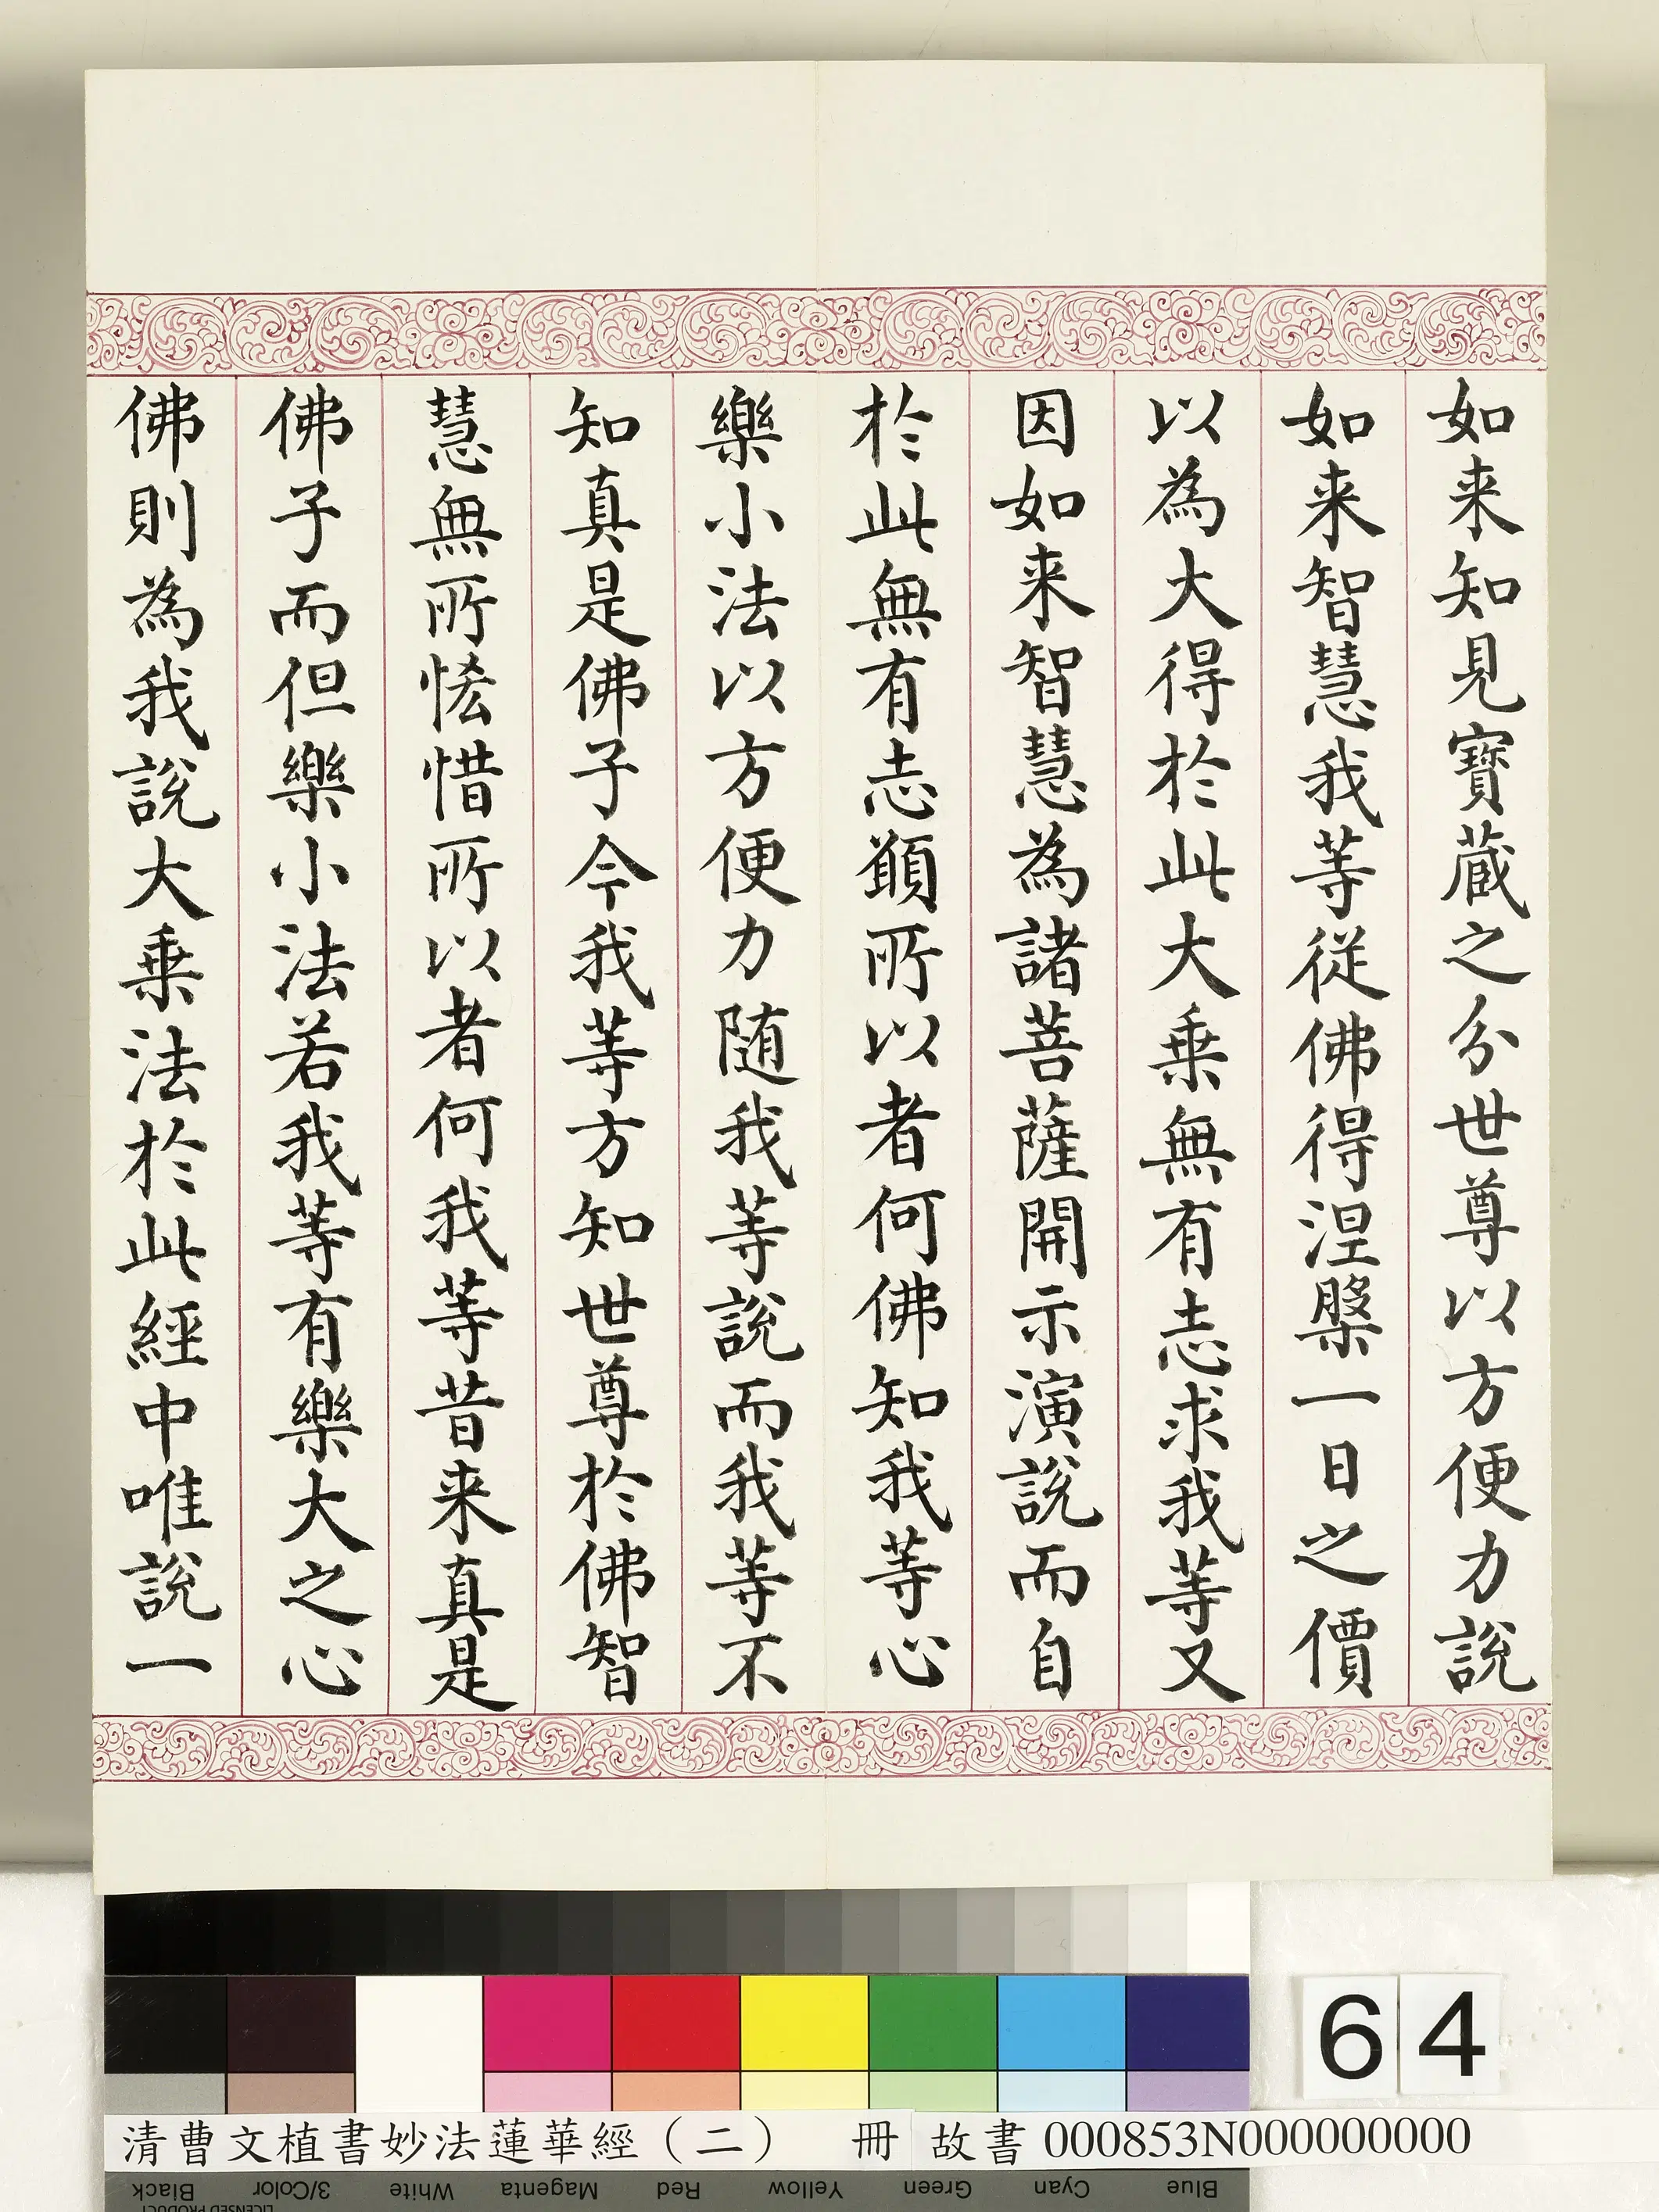 如来知見寳蔵之分世尊以方便力說
如来智慧我等從佛得涅槃一日之價
以為大得於此大乗無有志求我等又
因如来智慧為諸菩薩開示演說而自
於此無有志顚所以者何佛知我等心
樂小法以方便力随我等說而我等不
知真是佛子今我等方知世尊於佛智
慧無所悋惜所以者何我等昔来真是
佛子而但樂小法若我等有樂大之心
佛則為我說大乗法於此經中唯說一
64
清曹文植書妙法蓮華經（二） 冊 故書 000853N000000000
Black 3/Color White Magenta Red Yellow Green Cyan Blue
LICENSED PRODUCT